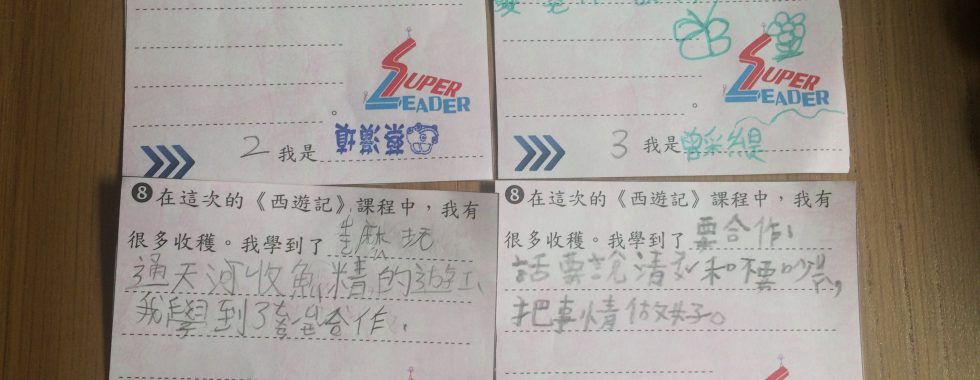 SUPER
LEADER
。
2 我是
SUPER
LEADER
。
3 我是曾采緹
❽在這次的《西遊記》課程中，我有
很多收穫。我學到了
通天河收魚精的
我學到了合作、
❽在這次的《西遊記》課程中，我有
很多收穫。我學到了要合作、
話要說清和不要吵架,
把事情做好。